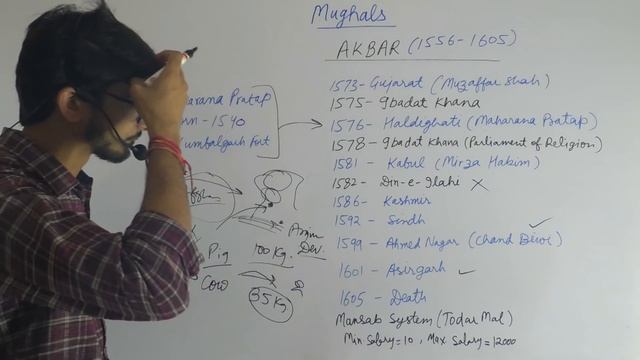 Mughals
AKBAR (1556-1605)
1573- Gujarat (Muzaffar Shah)
1575- Igbadat Khana
1576- Haldighati (Maharana Pratap)
1578- Igbadat Khana (Parliament of Religion)
1581 - Kabul (Mirza Hakim)
1582 - Din-e-Ilahi X
1586- Kashmir
1592 - Sindh
1599 - Ahmed Nagar (Chand Biwi)
1601 - Asirgarh
1605 - Death
Mansab System (Todar Mal)
Min Salary=10, Max Salary=12000
arana Pratap
rn - 1540
Kumbalgarh Fort
Pig
Cow
100 Kg.
35 Kg
Dev.